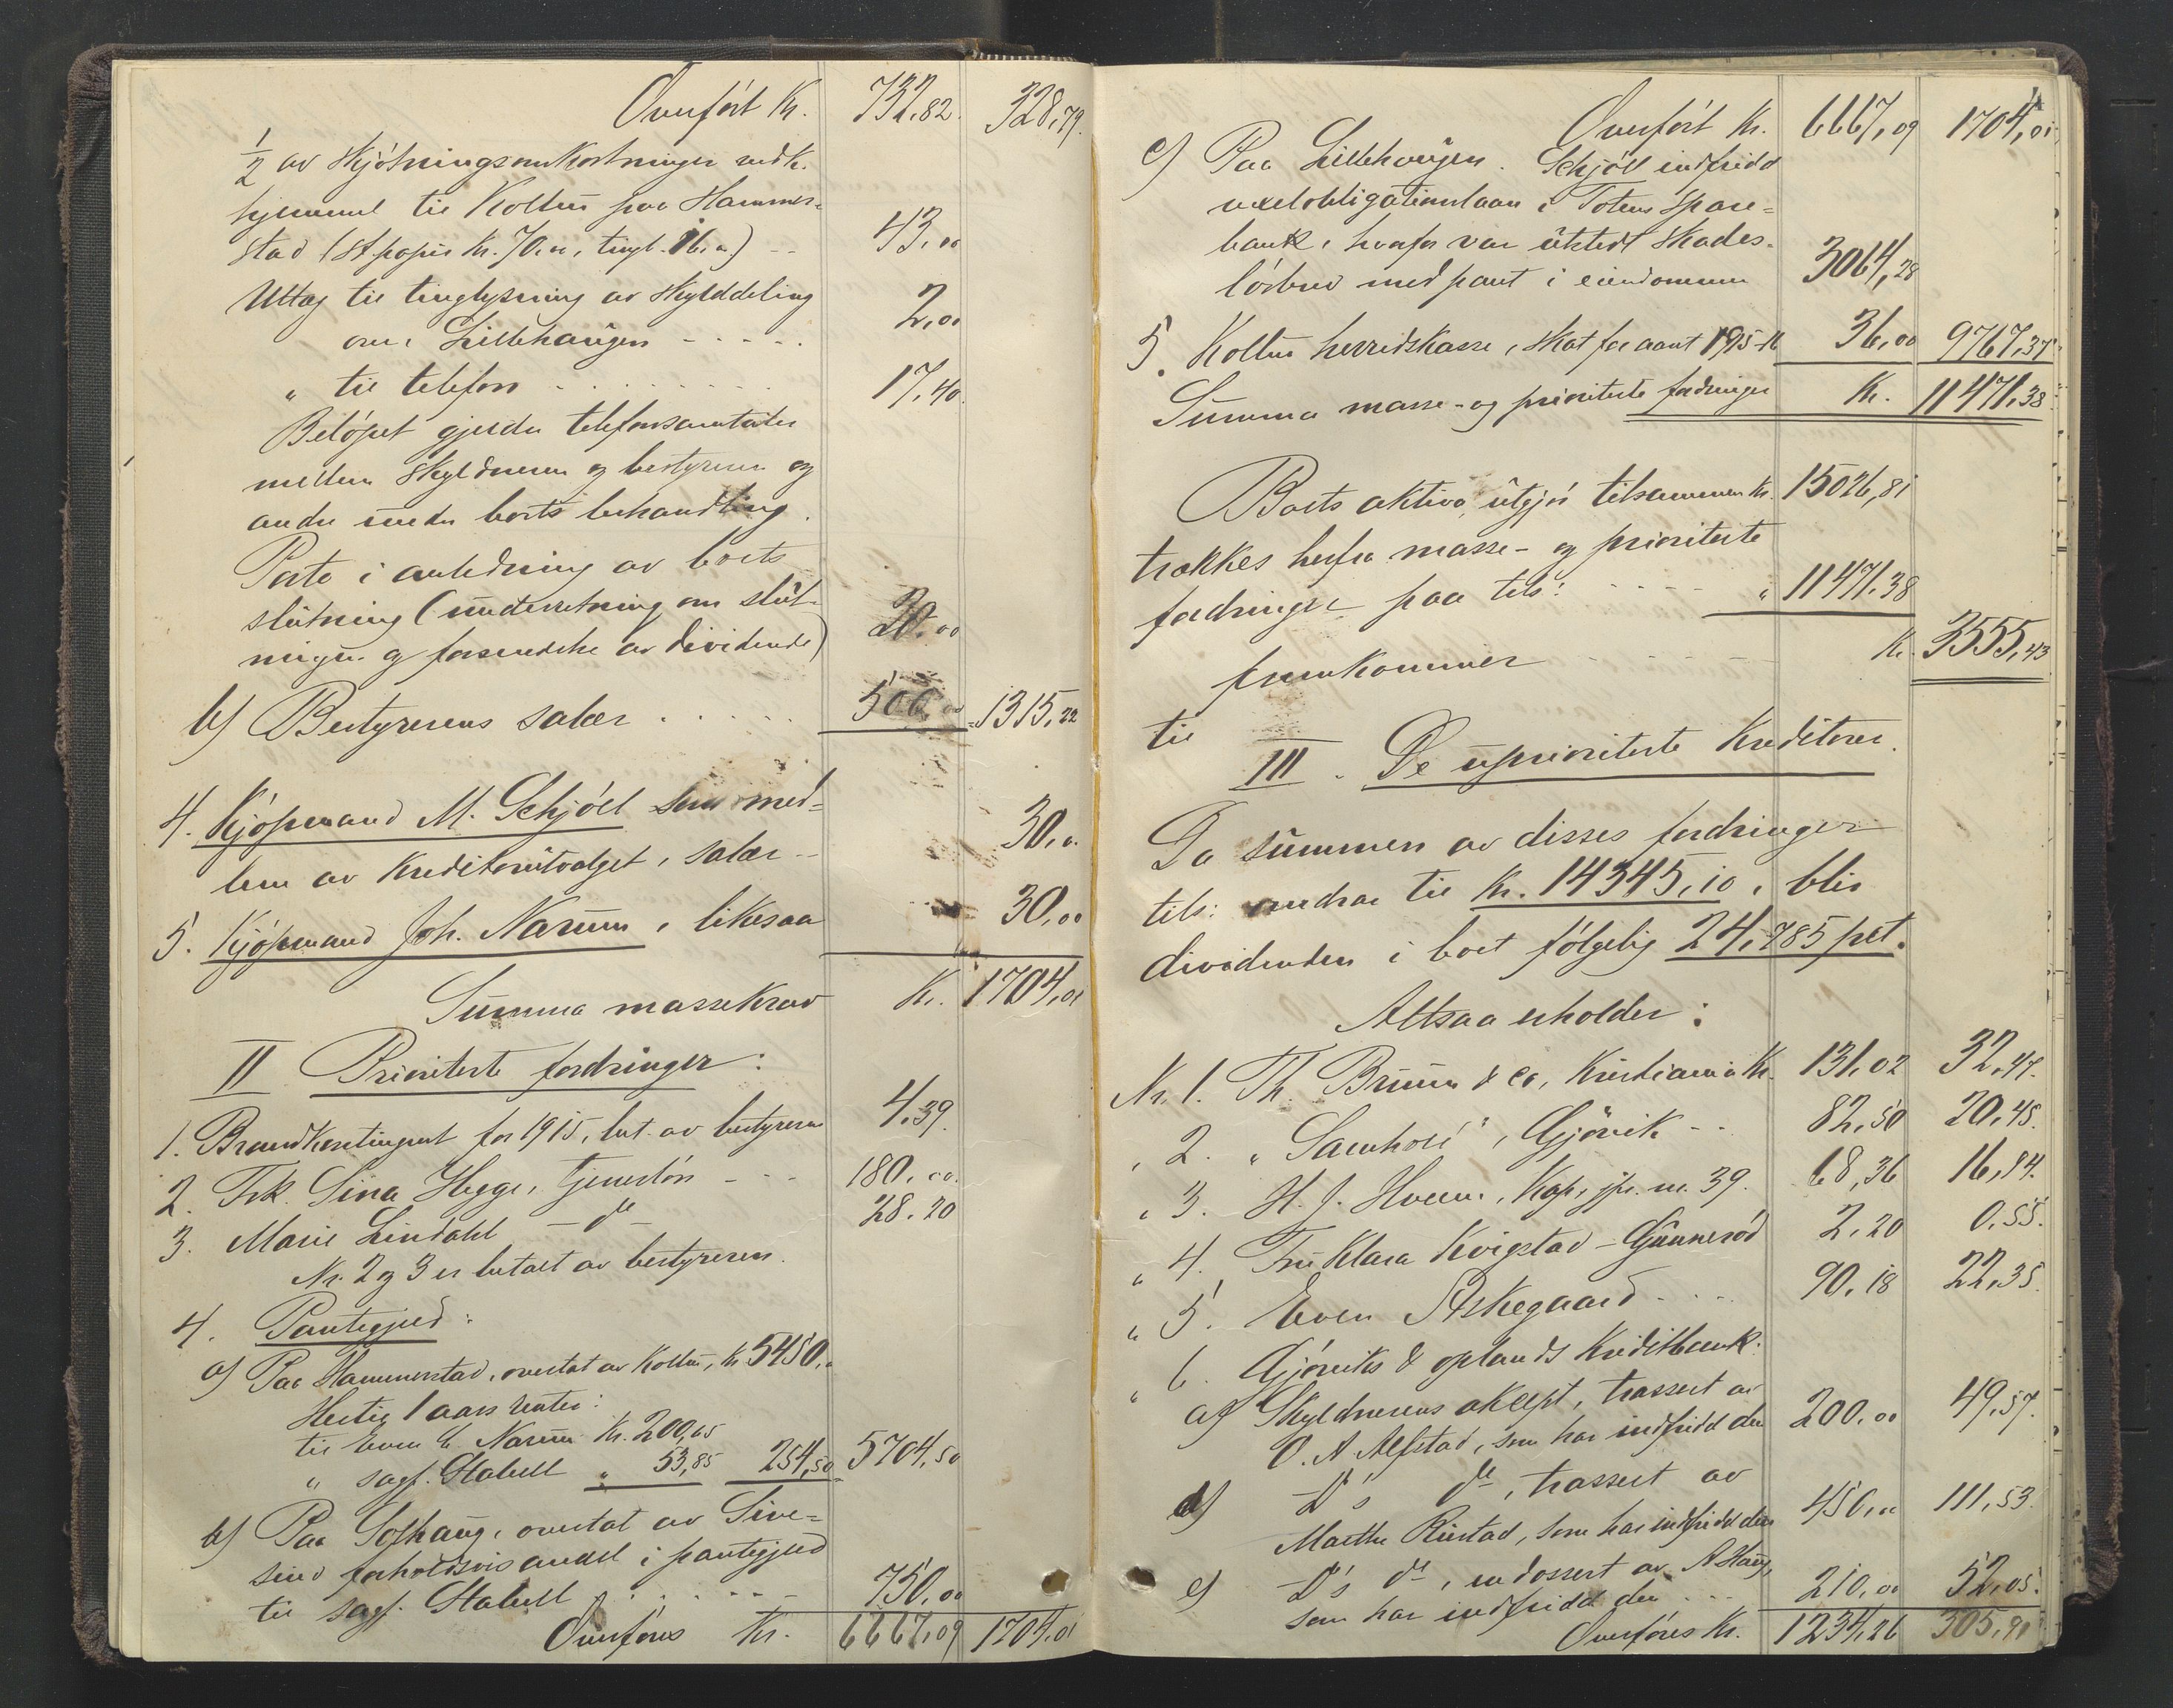 Overført Kr. 732,82 328,79.
1/2 av skjøtningsomkostninger vedk.
hjemmel til Kolbu paa Hammer-
stad (st.papir Kr. 70.00, tingl. 16.00) -- 43,00
Utlæg til tinglysning av skylddeling
over Lillehaugen ----- 2,00
" til telefon ........ 17,40
Beløpet gjelder telefonsamtaler
mellem skyldneren og bestyreren og
andre under boets behandling.
Porto i anledning av boets
slutning (underretning om slut-
ningen og forsendelse av dividende) 20,00
b) Bestyrerens salær ..... 500,00 1315,22
4. Kjøpmand M. Schjøll som med-
lem av kreditorutvalget, salær -- 30,00
5. Kjøpmand Joh. Narum, likesaa 30,00
Summa massekrav Kr. 1704,01
II Prioriterte fordringer:
1. Brandkontingent for 1915, bet. av bestyreren 4,39
2. Frk. Sina Hegge, tjenerløn --- 180,00
3. Marie Lindahl -do- 28,20
Nr. 2 og 3 er betalt av bestyreren.
4. Pantegjeld:
a) Paa Hammerstad, overtat av Kolbu, Kr. 5450,00
Hertil 1 aars renter:
til Even E. Narum Kr. 200,65
" sagf. Stabell " 53,85 254,50 5704,50
b) Paa Solhaug, overtat av Sive-
sind forholdsvis andel i pantegjeld
til sagf. Stabell ..... 750,00
Overføres Kr. 6667,09 1704,01
Overført Kr. 6667,09 1704,01
c) Paa Lillehaugen. Schjøll indfridd
vexelobligationslaan i Totens Spare-
bank, hvorfor var utstedt skades-
løsbrev med pant i eiendommen 3064,28
5. Kolbu herredskasse, skat for aaret 1915-16 36,00 9767,37
Summa masse- og prioriterte fordringer Kr. 11471,38
Boets aktiva utgjør tilsammen Kr. 15026,81
trækkes herfra masse- og prioriterte
fordringer paa tils: ---- " 11471.38
fremkommer ----- Kr. 3555,43
til
III. De uprioriterte kreditorer.
Da summen av disses fordringer
tils: andrar til Kr. 14345,10, blir
dividenden i boet følgelig 24,785 pct.
Altsaa erholder:
Nr. 1. Th. Bruun & Co, Kristiania Kr. 131,02 32,47.
" 2. "Samhold", Gjøvik -- 82,50 20,45.
" 3. H. J. Hveem, Kap, jfr. nr. 39. 68,36 16,94.
" 4. Fru Klara Kvigstad - Gunnerød 2,20 0,55.
" 5. Even Askegaard .... 90,18 22,35.
" 6. Gjøviks & oplands kreditbank:
a) Skyldnerens aksept, trassert av
O. A. Alfstad, som har indfridd den 200,00 49,57.
d) D's do, trassert av
Marthe Rustad, som har indfridd den 450,00 111,53.
e) D's do, endossert av A. Haug,
som har indfridd den ... 210,00 52,05.
Overføres Kr. 1234,26 305,91